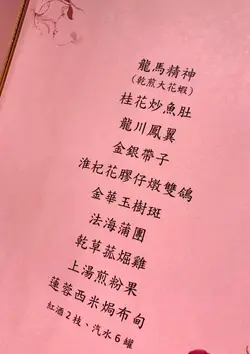 龍馬精神
(乾煎大花蝦)
桂花炒魚肚
龍川鳳翼
金銀帶子
淮杞花膠仔燉雙鴿
金華玉樹斑
法海蒲團
乾草菰焗雞
上湯煎粉果
蓮蓉西米焗布甸
紅酒2枝、汽水6罐